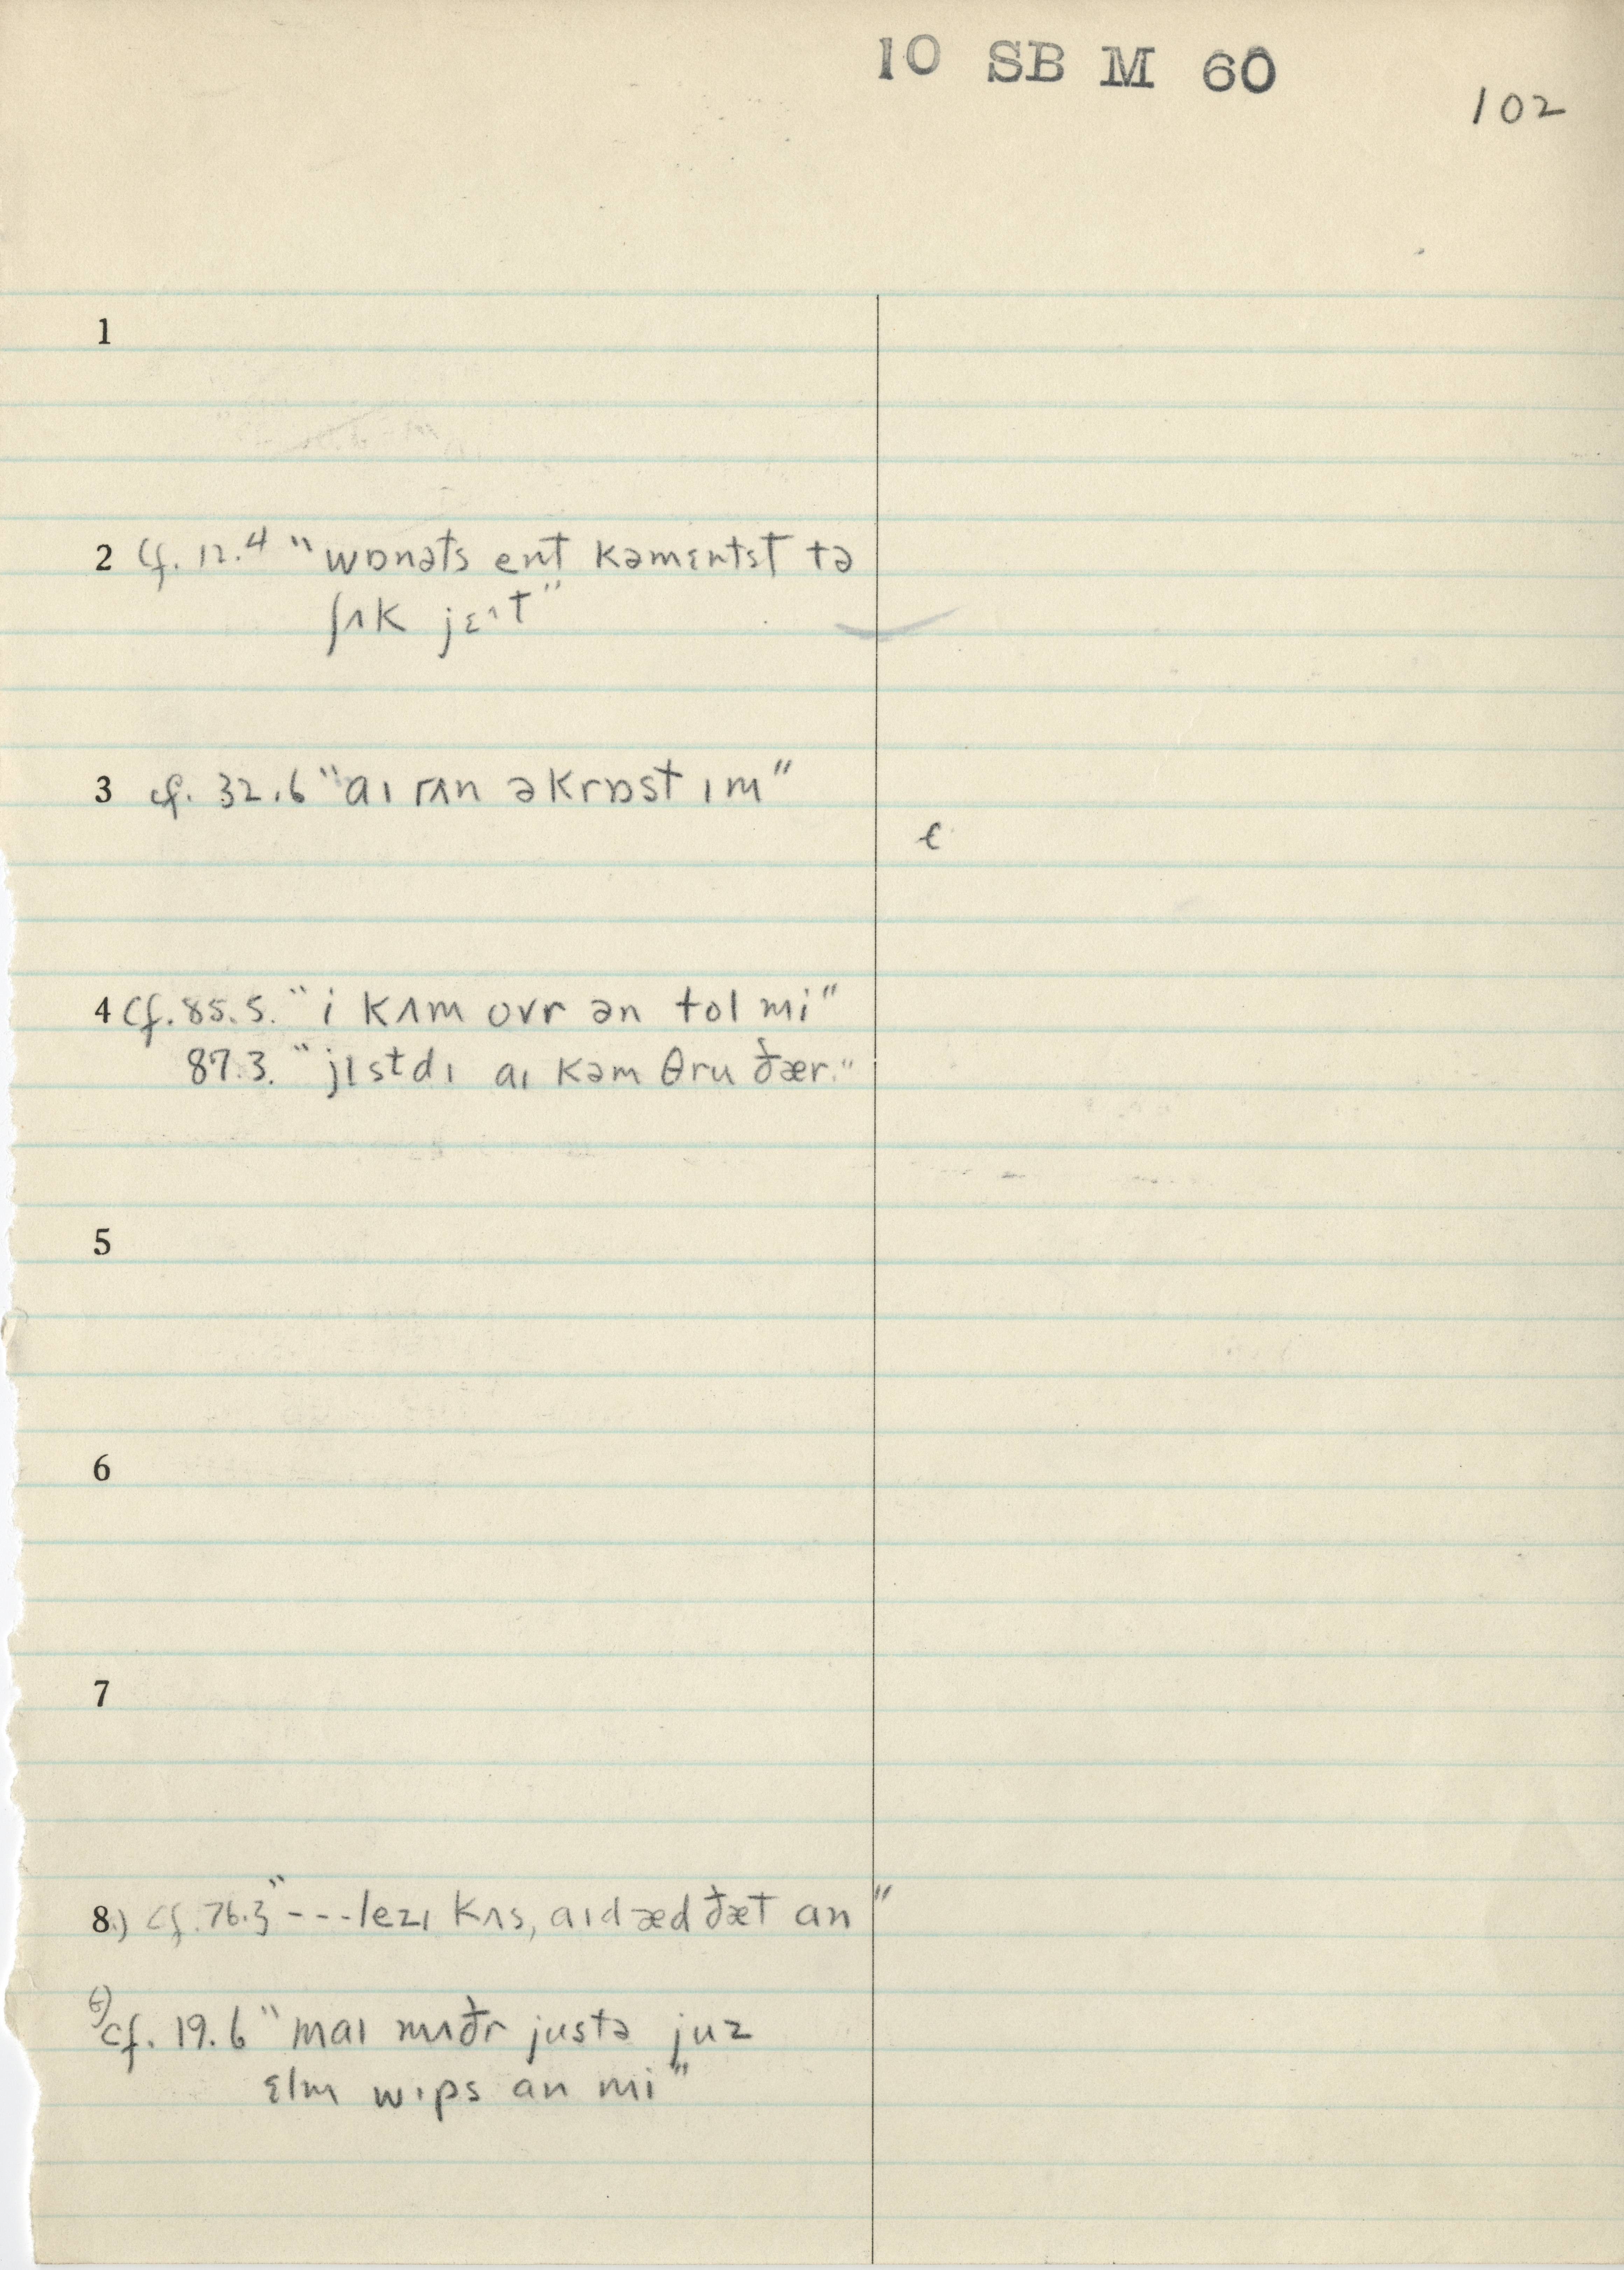 10 SB M 60
102
1
2 Cf. 12.4 "wɒnəts ent kəmɛntst tə
ʃʌk jɛ^t"
3 cf. 32.6 "aɪ rʌn əkrɒst ɪm"
ϵ
4 Cf. 85.5. "i kʌm ovr ən tol mi"
87.3. "jɪstdɪ aɪ kəm θru ðær."
5
6
7
8.) cf. 76.3 "---lezɪ kʌs, aɪd æd ðæt an"
cf. 19.6 "maɪ mʌðr justə juz
ɛlm wɪps an mi"